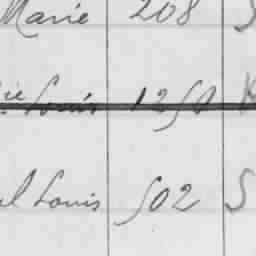 Marie 208 S
ie Louis 1250
l Louis 502 S